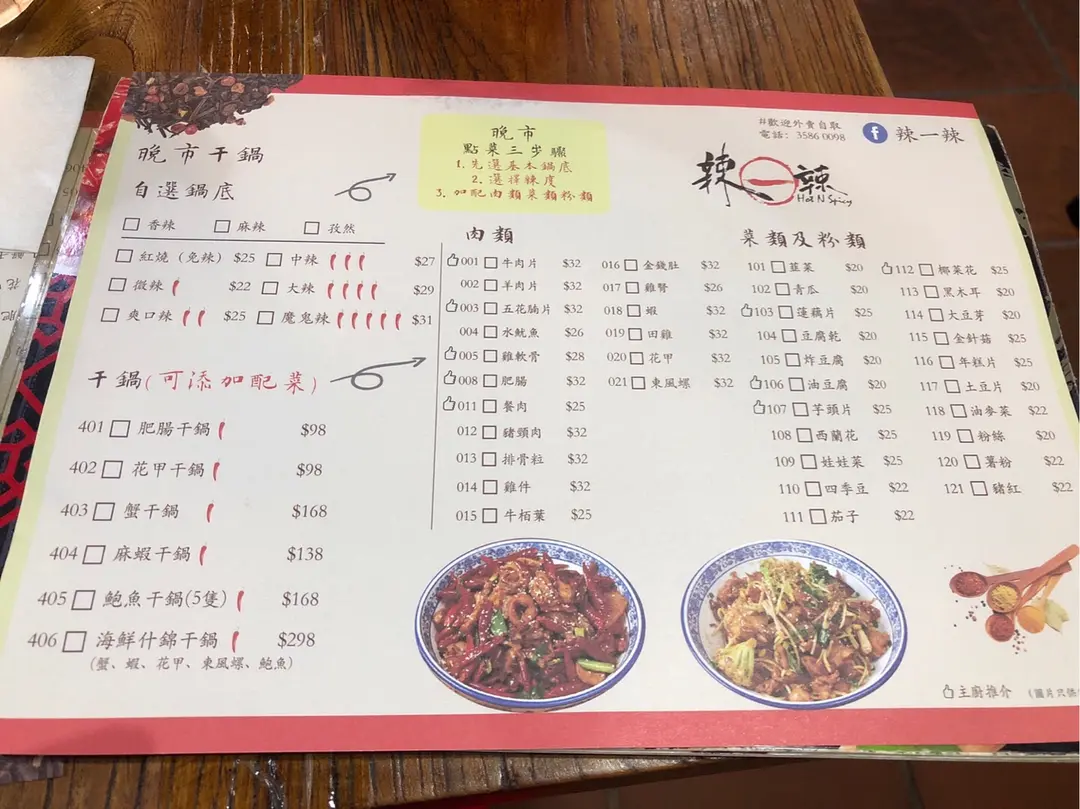 晚市干鍋
自選鍋底
香辣 麻辣 孜然
紅燒 (免辣) $25 中辣 $27
微辣 $22 大辣 $29
爽口辣 $25 魔鬼辣 $31
干鍋(可添加配菜)
401 肥腸干鍋 $98
402 花甲干鍋 $98
403 蟹干鍋 $168
404 麻蝦干鍋 $138
405 鮑魚干鍋(5隻) $168
406 海鮮什錦干鍋 $298
(蟹、蝦、花甲、東風螺、鮑魚)
晚市
點菜三步驟
1. 先選基本鍋底
2. 選擇辣度
3. 加配肉類菜類粉類
#歡迎外賣自取
電話: 3586 0098
f 辣一辣
辣一辣
Hot N Spicy
肉類
001 牛肉片 $32
002 羊肉片 $32
003 五花腩片 $32
004 水魷魚 $26
005 雞軟骨 $28
008 肥腸 $32
011 餐肉 $25
012 豬頸肉 $32
013 排骨粒 $32
014 雞件 $32
015 牛栢葉 $25
016 金錢肚 $32
017 雞腎 $26
018 蝦 $32
019 田雞 $32
020 花甲 $32
021 東風螺 $32
菜類及粉類
101 韮菜 $20
102 青瓜 $20
103 蓮藕片 $25
104 豆腐乾 $20
105 炸豆腐 $20
106 油豆腐 $20
107 芋頭片 $25
108 西蘭花 $25
109 娃娃菜 $25
110 四季豆 $22
111 茄子 $22
112 椰菜花 $25
113 黑木耳 $20
114 大豆芽 $20
115 金針菇 $25
116 年糕片 $25
117 土豆片 $20
118 油麥菜 $22
119 粉絲 $20
120 薯粉 $22
121 豬紅 $22
主廚推介 (圖片只供